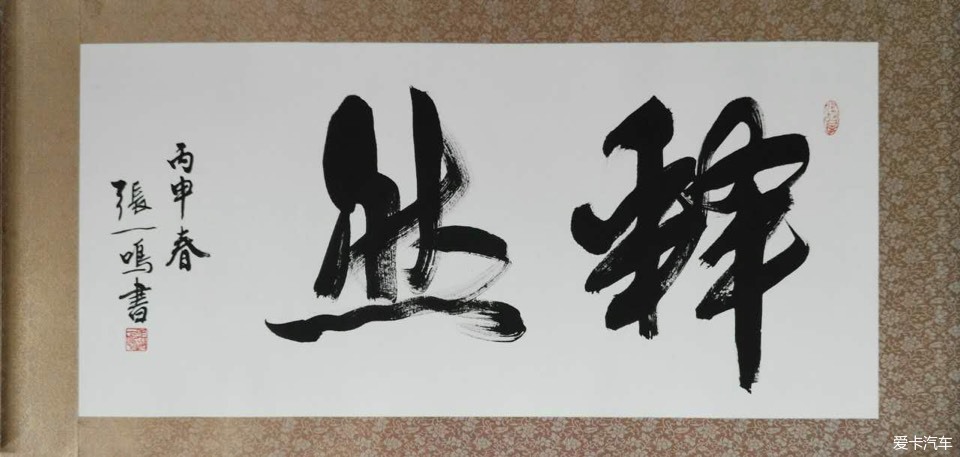 释然
丙申春
張一鳴書
爱卡汽车